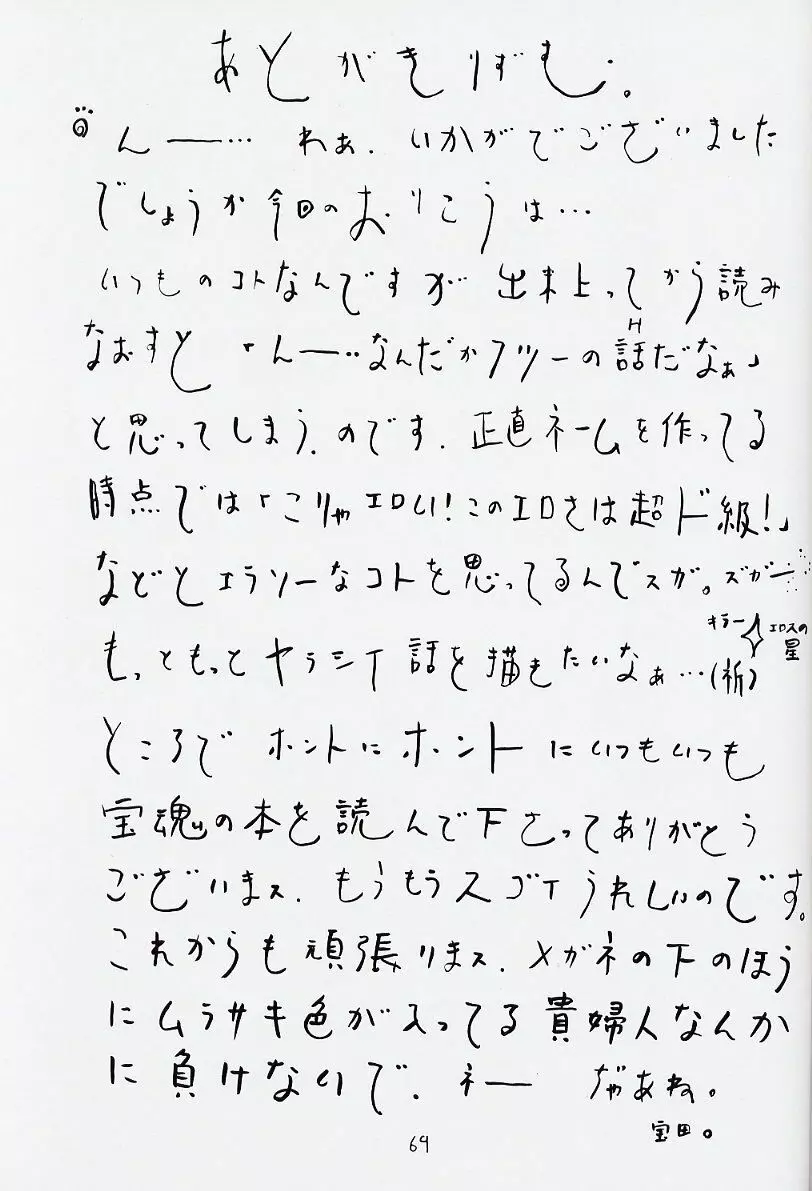 あとがきりずむ。
んー…ねぇ.いかがでございました
でしょうか今回のおりこうは…
いつものコトなんですが出来上ってから読み
なおすと「んー…なんだかフツーのH話だなぁ」
と思ってしまう.のです.正直ネームを作ってる
時点では「こりゃエロい!このエロさは超ド級!」
などとエラソーなコトを思ってるんでスガ。ズガー
キラー エロスの星
もっともっとヤラシイ話を描きたいなぁ…(祈)
ところでホントにホントにいつもいつも
宝魂の本を読んで下さってありがとう
ございまス.もうもうスゴイうれしいのです。
これからも頑張りまス.メガネの下のほう
にムラサキ色が入ってる貴婦人なんか
に負けないで.ネー ぢゃあね。
宝田。
64